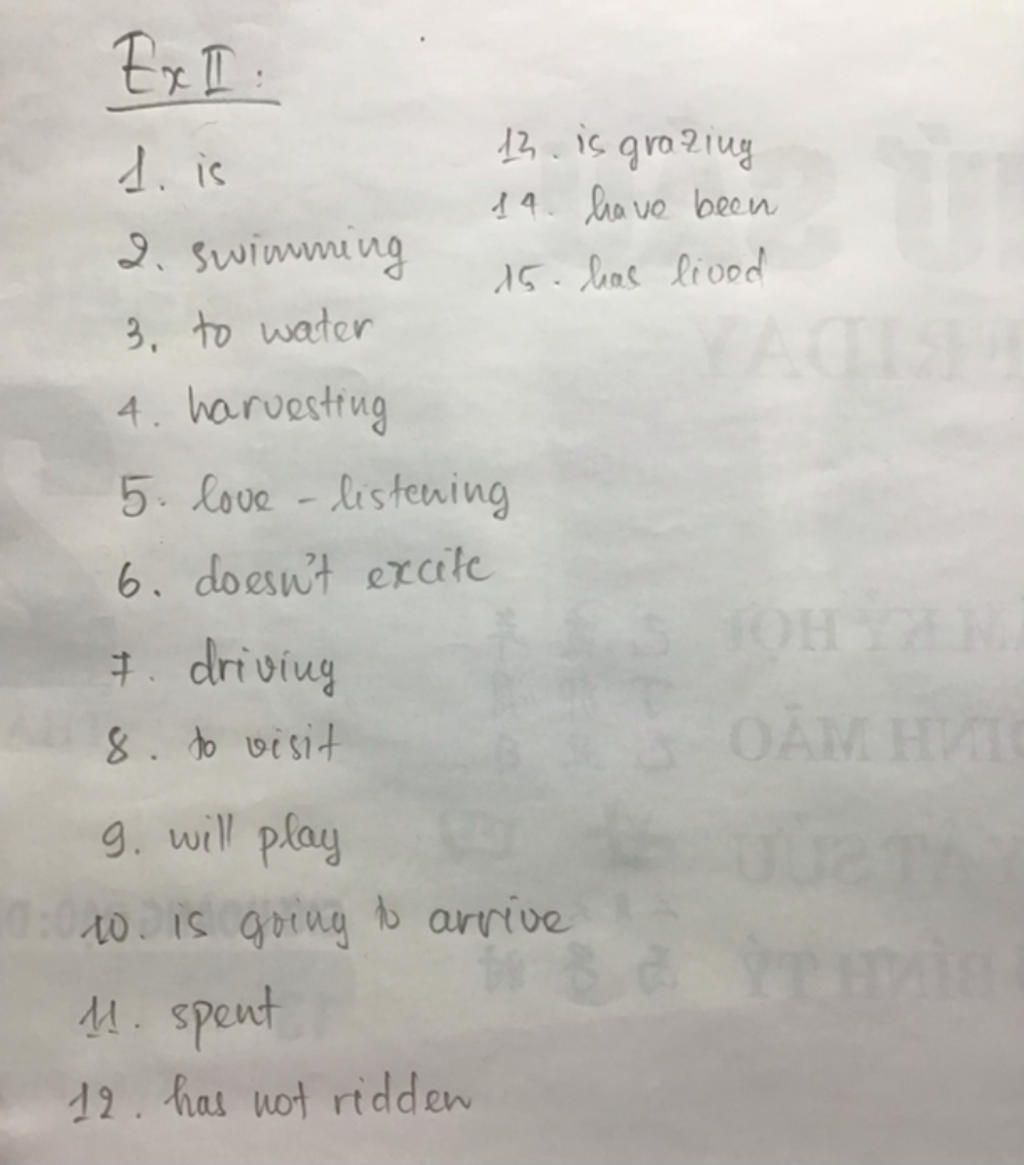 Ex II:
1. is
2. swimming
3. to water
4. harvesting
5. love - listening
6. doesn't excite
7. driving
8. to visit
9. will play
10. is going to arrive
11. spent
12. has not ridden
13. is grazing
14. have been
15. has lived
FRIDAY
KỶ HỢI
ĐINH MÃO
ẤT SỬU
BÍNH TÝ